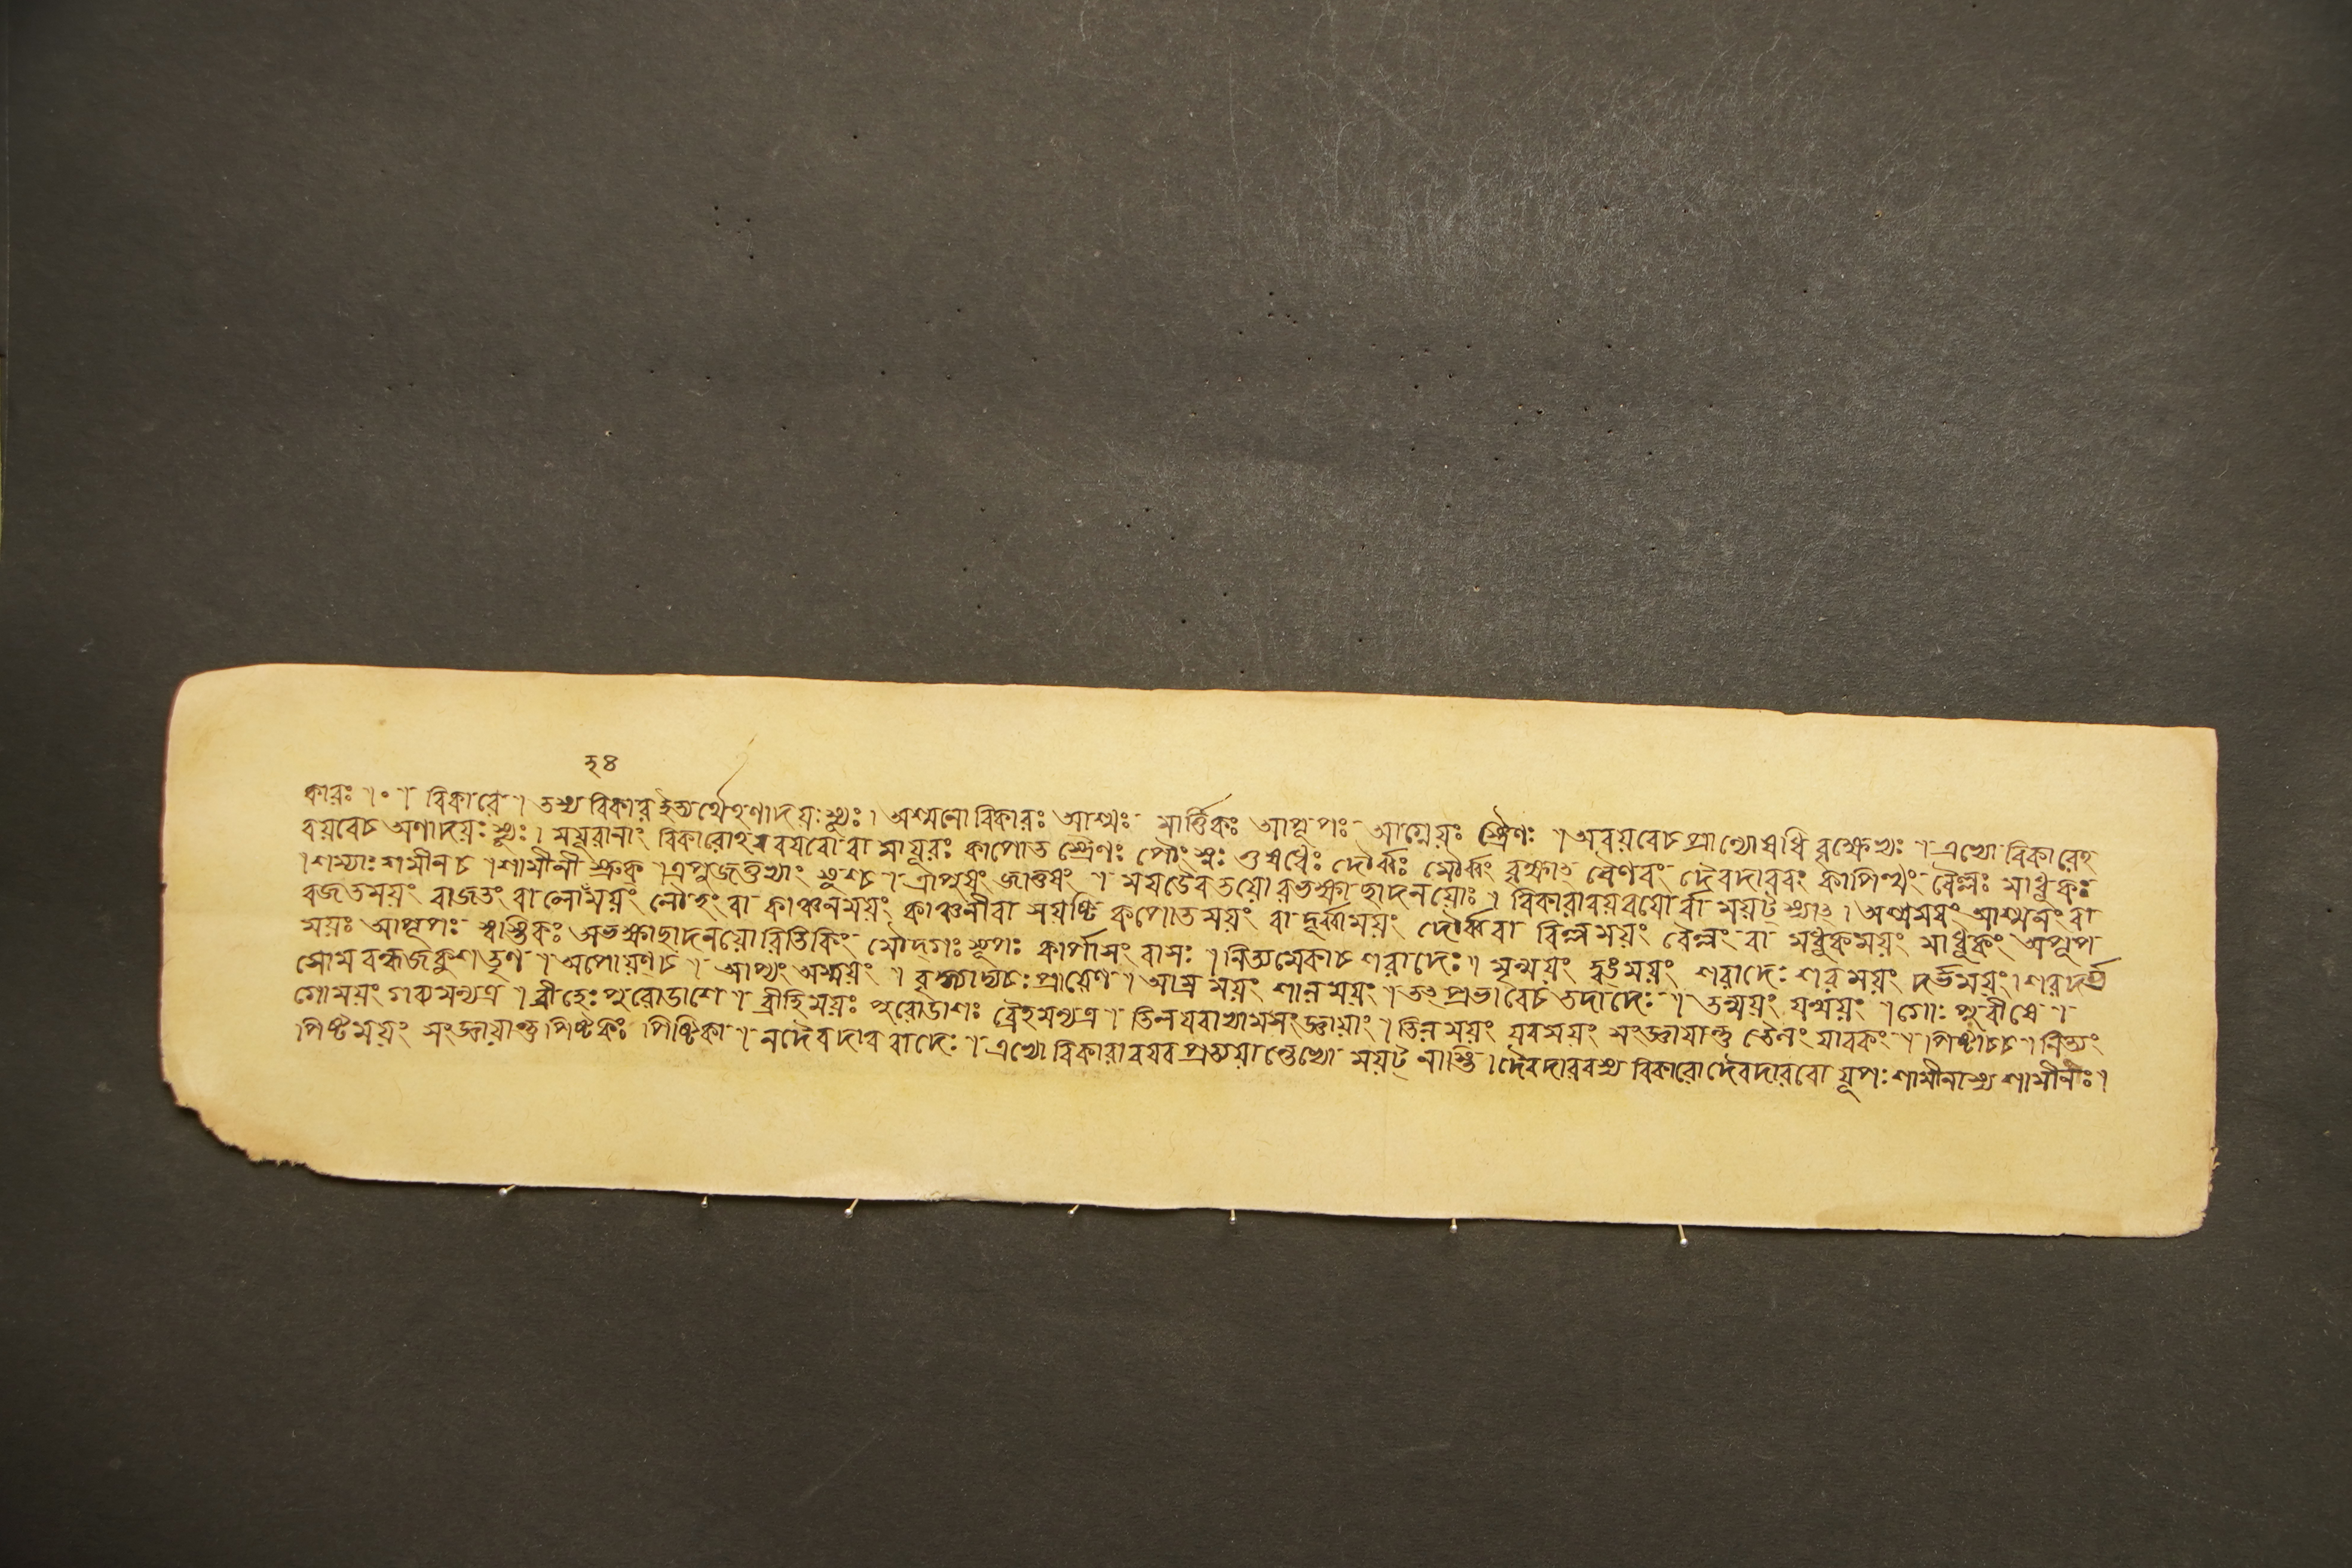 কারঃ ।॰। বিকারে । তস্য বিকার ইত্যর্থেহণাদয়ঃ স্যুঃ । অশ্মনো বিকারঃ আশ্মঃ মার্ত্তিকঃ আপূপঃ আগ্নেয়ঃ স্ত্রৈণঃ । অবয়বেচ প্রাণ্যোষধি বৃক্ষেভ্যঃ । এভ্যো বিকারেহ
বয়বেচ অণাদয়ঃ স্যুঃ । ময়ূরানাং বিকারোহবয়বো বা মায়ূরঃ কাপোত স্ত্রৈণঃ পৌংস্নঃ ওষধেঃ দৌর্ব্বঃ মৌর্ব্বং বৃক্ষাৎ বৈণবং দৈবদারবং কাপিত্থং বৈল্লঃ মাধুকঃ
। শম্যাঃ শমীনচ । শামীনী স্রুক্ । ত্রপুজতুভ্যাং ষুশ্চ । ত্রাপুষং জাতুষং । ময়ডৈবতয়ো রভক্ষ্যাছাদনয়োঃ । বিকারাবয়বয়োর্ব্বা ময়ট্ স্যাৎ । অশ্মময়ং আশ্মনং বা
রজতময়ং রাজতং বা লোহময়ং লৌহং বা কাঞ্চনময়ং কাঞ্চনীবা সয়ষ্টি কপোতময়ং বা দূর্ব্বাময়ং দৌর্ব্ববা বিল্লময়ং বৈল্লং বা মধুকময়ং মাধুকং অপূপ
ময়ঃ আপূপঃ স্বাস্তিকঃ অভক্ষ্যাছাদনয়োরিতিকিং মৌদ্গঃ সূপঃ কার্পাসং বাসঃ । নিত্যমেকাচ শরাদেঃ । মৃন্ময়ং ত্বঙ্ময়ং শরাদেঃ শরময়ং দর্ভময়ং । শরদর্ভ
সোম বল্বজকুশতৃণ । অপোয়ণ্চ । আপ্যং অম্ময়ং । বৃক্ষাম্যচঃ প্রায়েণ । আম্র ময়ং শালময়ং । তৎ প্রভাবেচ তদাদেঃ । তন্ময়ং যন্ময়ং । গোঃ পুরীষে ।
গোময়ং গব্যমন্যত্র । ব্রীহেঃ পুরোডাশে । ব্রীহিময়ঃ পুরোডাশঃ ব্রৈহমন্যত্র । তিলযবাভ্যামসংজ্ঞায়াং । তিলময়ং যবময়ং সংজ্ঞায়ান্তু তৈলং যাবকং । পিষ্টাচ্চ । নিত্যং
পিষ্টময়ং সংজ্ঞায়ান্তু পিষ্টকঃ পিষ্টিকা । নদৈবদারবাদেঃ । এভ্যো বিকারাবয়ব প্রত্যয়ান্তেভ্যো ময়ট্ নাস্তি । দৈবদারবস্য বিকারো দৈবদারবো যূপঃ শামীনাস্য শামীনীঃ ।